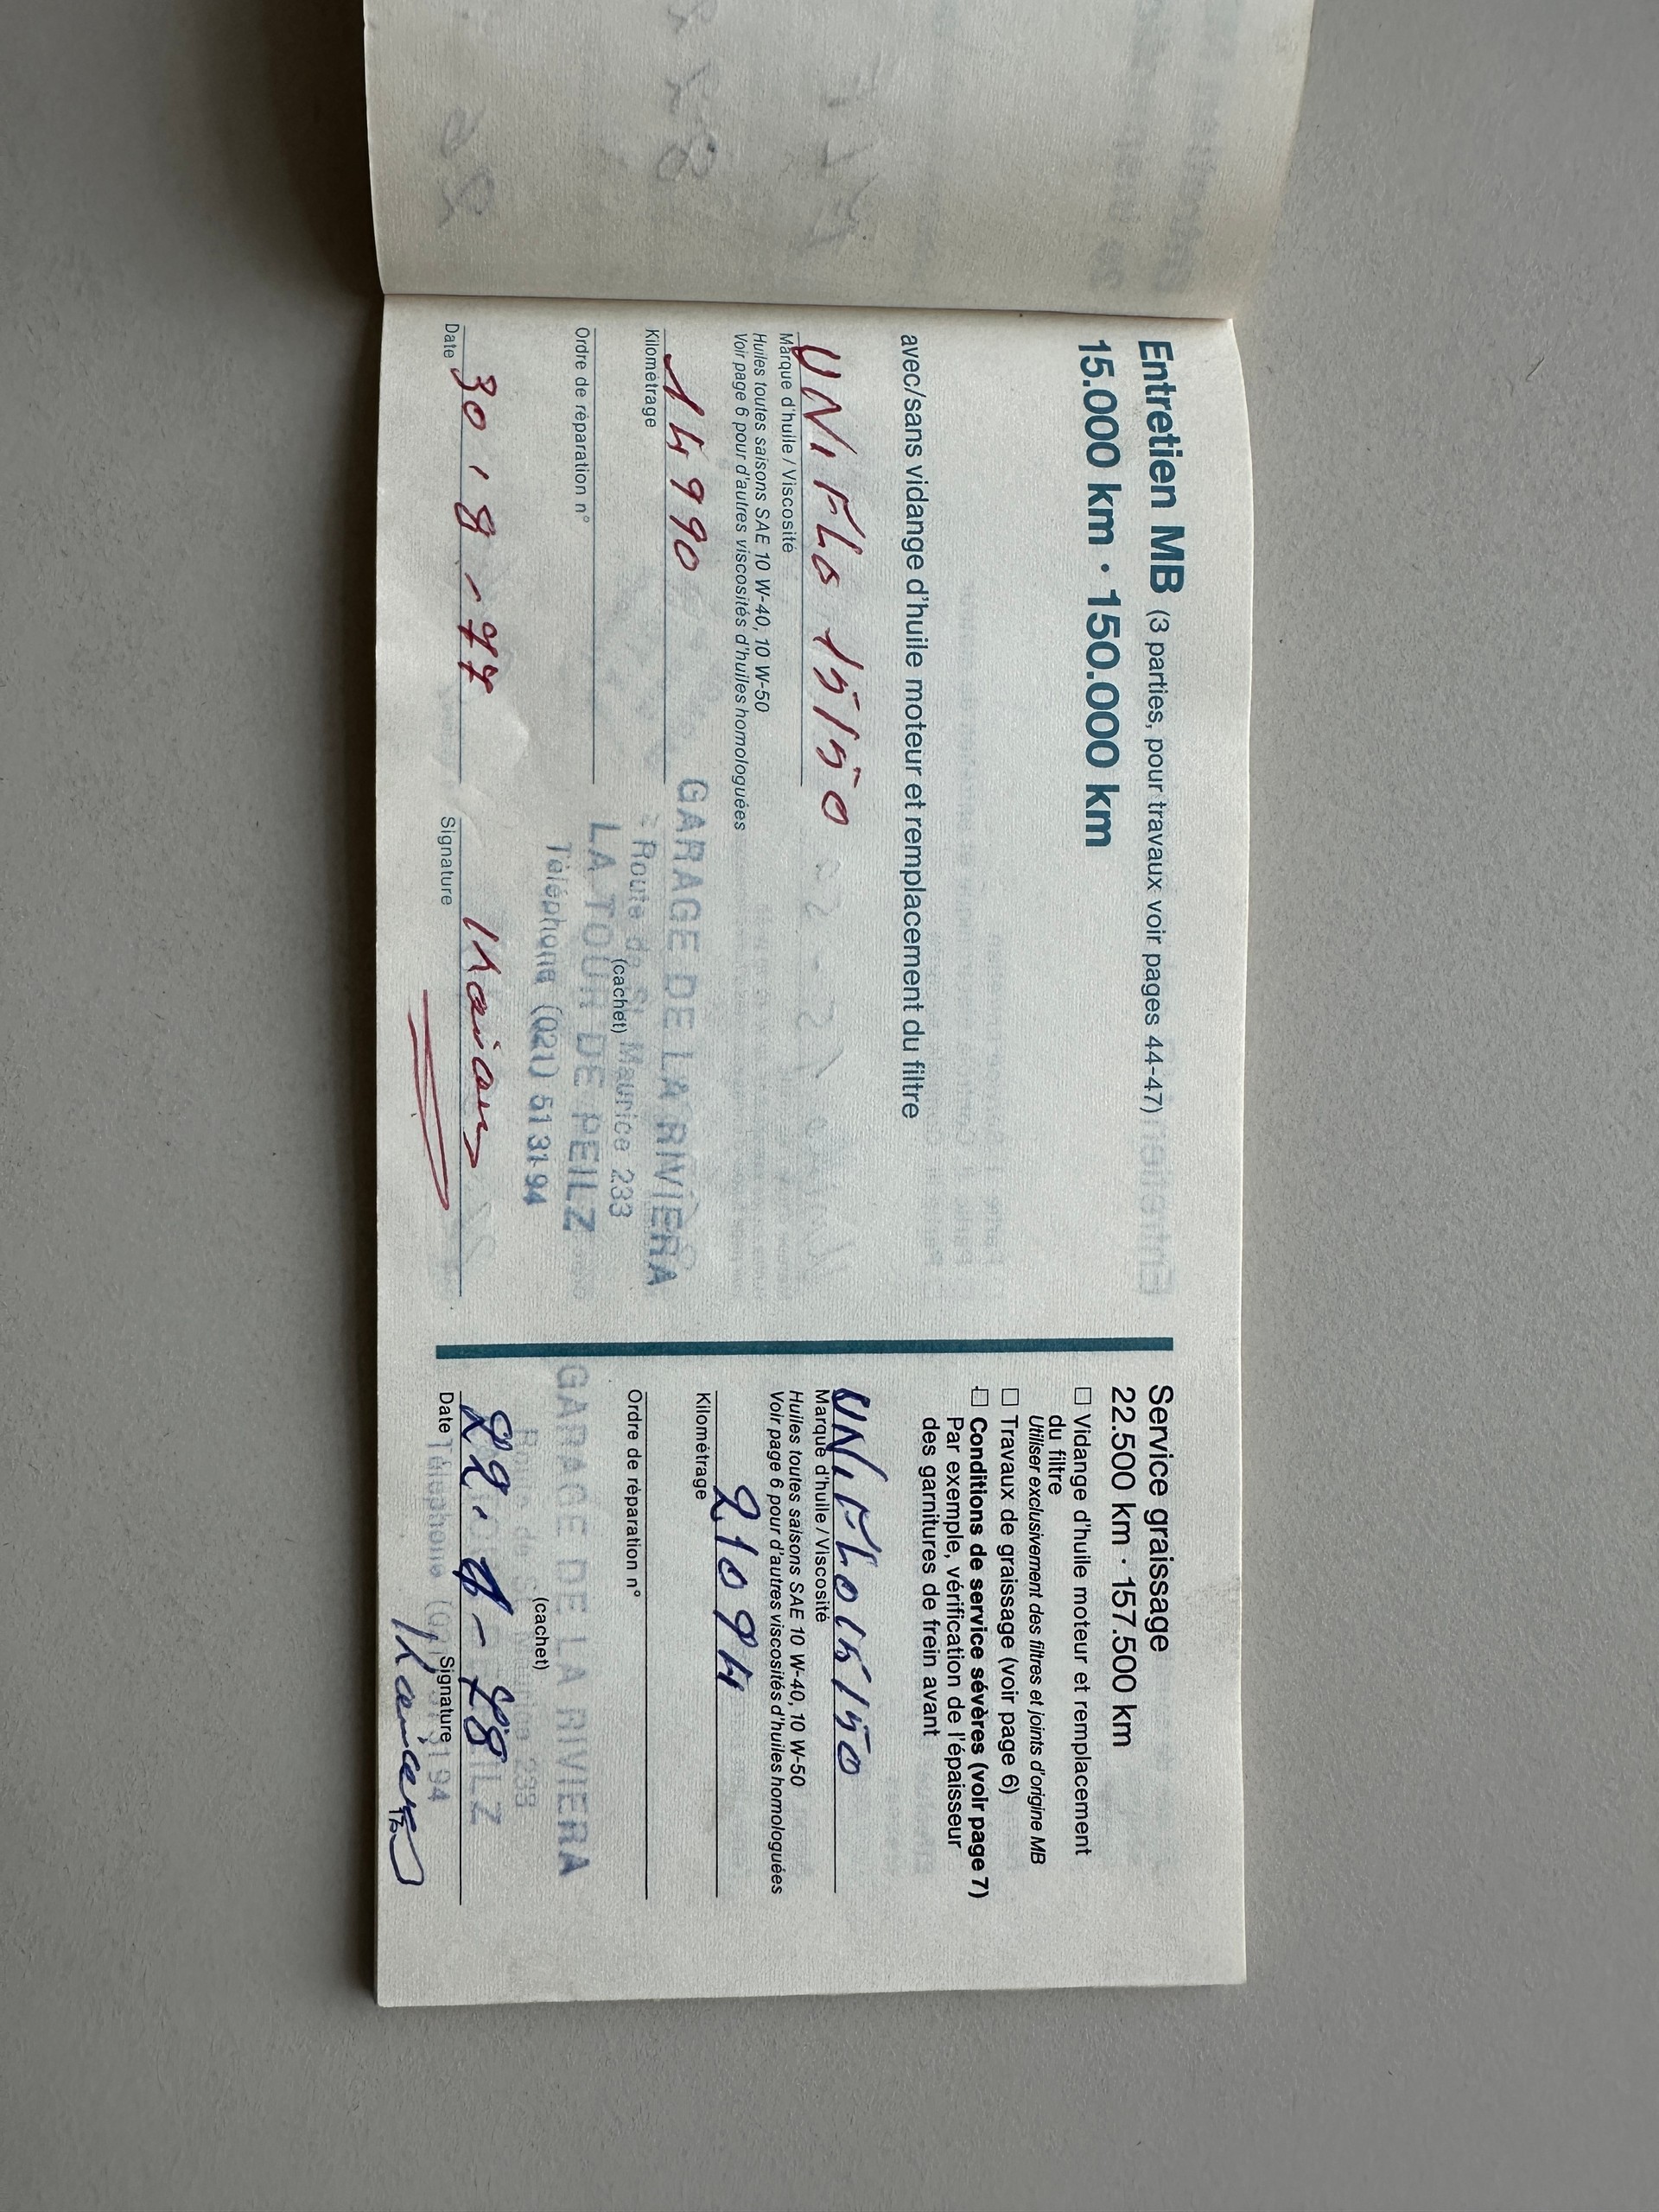 Entretien MB (3 parties, pour travaux voir pages 44-47)
15.000 km · 150.000 km
avec/sans vidange d'huile moteur et remplacement du filtre
UNIFLO 15/50
Marque d'huile / Viscosité
Huiles toutes saisons SAE 10 W-40, 10 W-50
Voir page 6 pour d'autres viscosités d'huiles homologuées
14990
Kilométrage
Ordre de réparation n°
GARAGE DE LA RIVIERA
Route de St Maurice 233
(cachet)
LA TOUR DE PEILZ
Téléphone (021) 51 31 94
30.8-77
Date
Signature
Service graissage
22.500 km · 157.500 km
Vidange d'huile moteur et remplacement
du filtre
Utiliser exclusivement des filtres et joints d'origine MB
Travaux de graissage (voir page 6)
Conditions de service sévères (voir page 7)
Par exemple, vérification de l'épaisseur
des garnitures de frein avant
UNIFLO 15/50
Marque d'huile / Viscosité
Huiles toutes saisons SAE 10 W-40, 10 W-50
Voir page 6 pour d'autres viscosités d'huiles homologuées
21094
Kilométrage
Ordre de réparation n°
GARAGE DE LA RIVIERA
Route de St Maurice 233
(cachet)
LA TOUR DE PEILZ
Téléphone (021) 51 31 94
Date
Signature